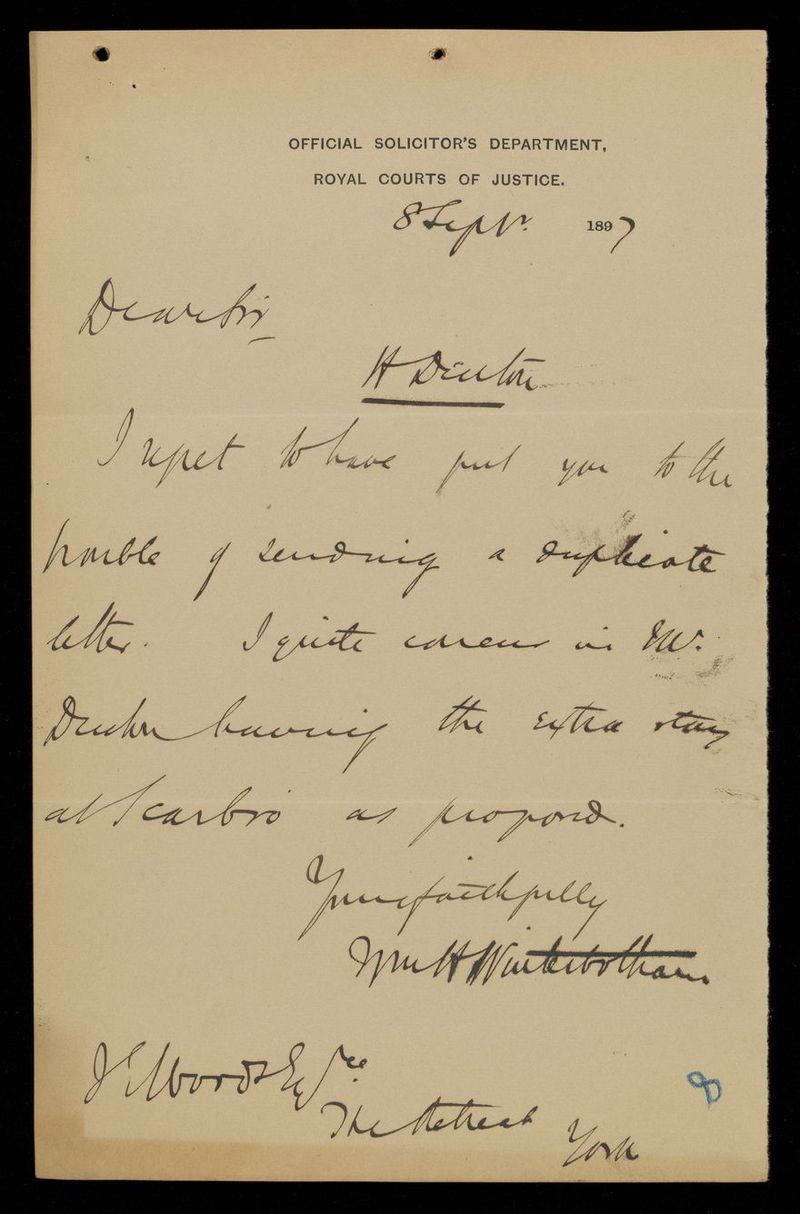 OFFICIAL SOLICITOR'S DEPARTMENT,
ROYAL COURTS OF JUSTICE.
8 Septr. 1897
Dear Sir
H Denton
I regret to have put you to the
trouble of sending a duplicate
letter. I quite concur in Mr.
Denton having the extra stay
at Scarbro as proposed.
Yours faithfully
Wm H Winterbotham
Woods Esqre.
The Retreat
York
8